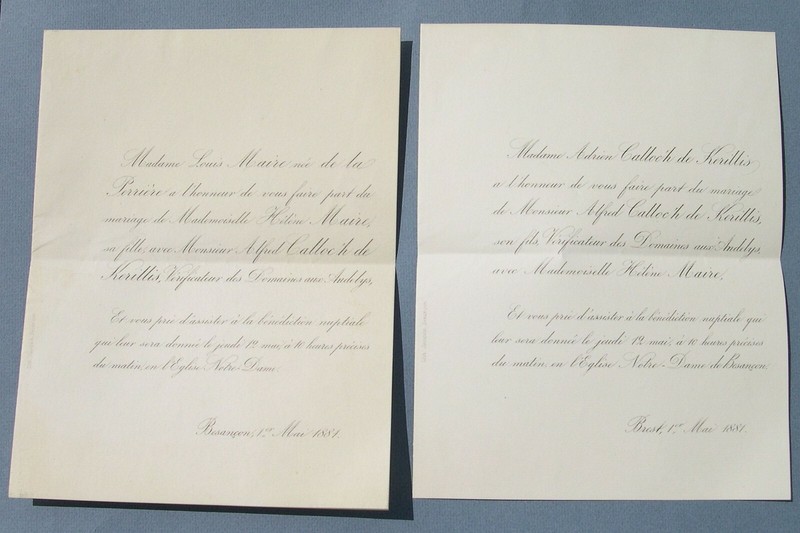 Madame Louis Maire née de la
Perrière a l'honneur de vous faire part du
mariage de Mademoiselle Hélène Maire,
sa fille, avec Monsieur Alfred Calloc'h de
Kerillis, Vérificateur des Domaines aux Andelys,
Et vous prie d'assister à la bénédiction nuptiale
qui leur sera donnée le jeudi 12 mai, à 10 heures précises
du matin, en l'Eglise Notre-Dame.
Besançon, 1er Mai 1881.
Madame Adrien Calloc'h de Kerillis
a l'honneur de vous faire part du mariage
de Monsieur Alfred Calloc'h de Kerillis,
son fils, Vérificateur des Domaines aux Andelys,
avec Mademoiselle Hélène Maire,
Et vous prie d'assister à la bénédiction nuptiale qui
leur sera donnée le jeudi 12 mai, à 10 heures précises
du matin, en l'Eglise Notre-Dame de Besançon.
Brest, 1er Mai 1881.